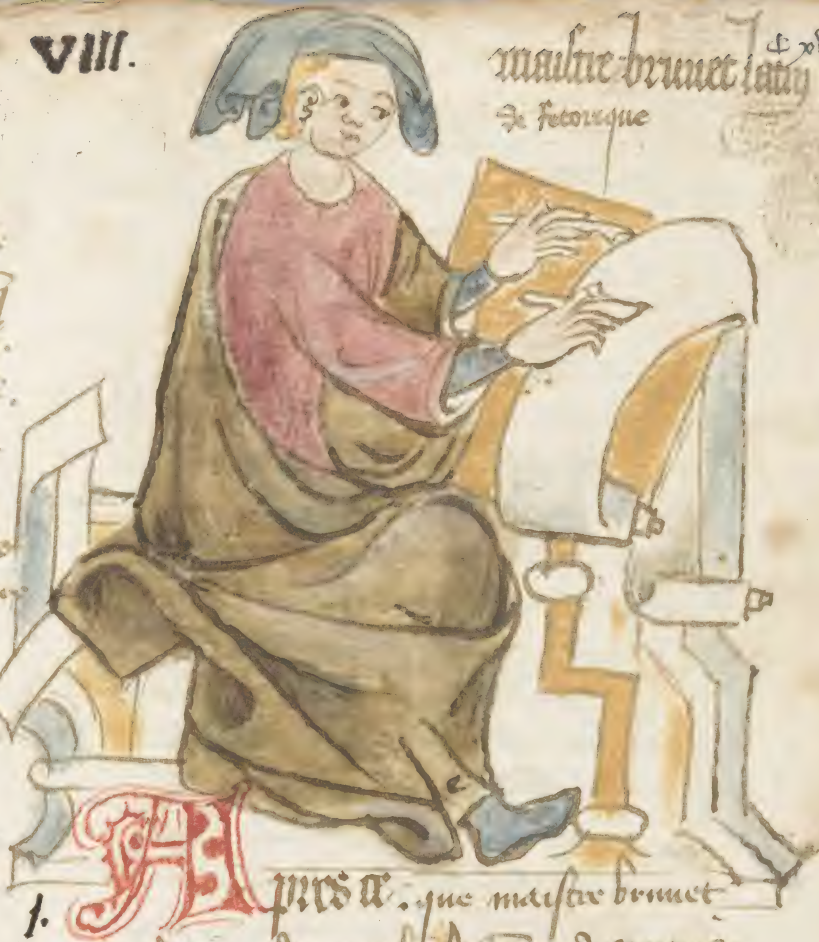 VIII.
maistre brunet latin
de retorique
1.
Apres ce que maistre brunet